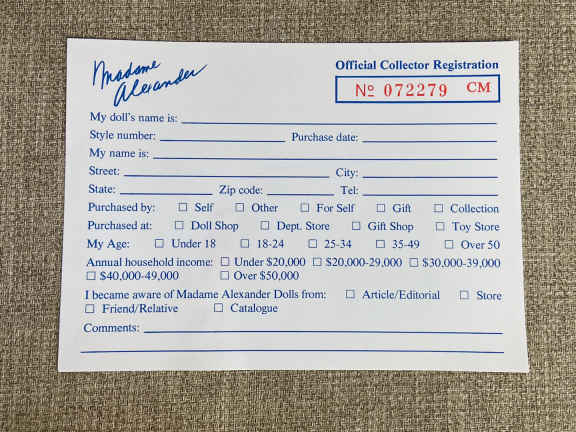 Madame
Alexander
Official Collector Registration
№ 072279 CM
My doll's name is:
Style number: Purchase date:
My name is:
Street: City:
State: Zip code: Tel:
Purchased by: □ Self □ Other □ For Self □ Gift □ Collection
Purchased at: □ Doll Shop □ Dept. Store □ Gift Shop □ Toy Store
My Age: □ Under 18 □ 18-24 □ 25-34 □ 35-49 □ Over 50
Annual household income: □ Under $20,000 □ $20,000-29,000 □ $30,000-39,000
□ $40,000-49,000 □ Over $50,000
I became aware of Madame Alexander Dolls from: □ Article/Editorial □ Store
□ Friend/Relative □ Catalogue
Comments: